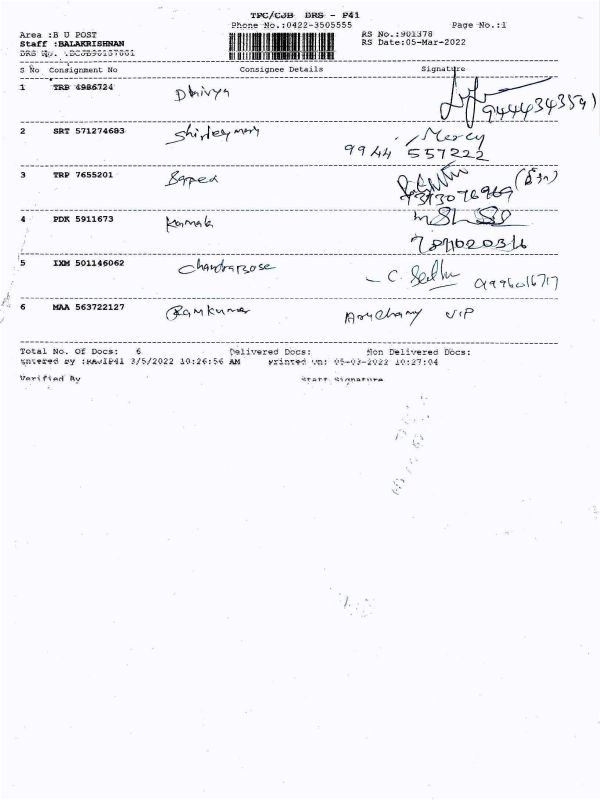 TPC/CJB DRS - P41
Phone No.:0422-3505555
Page No.:1
Area :B U POST
RS No.:901378
Staff :BALAKRISHNAN
RS Date:05-Mar-2022
DRS No.
S No Consignment No Consignee Details Signature
1 TRP 4986724 Dhivya
9444343591
2 SRT 571274683 Shirley mary Mercy
9944 557222
3 TRP 7655201
4 PDK 5911673 Kamala
5 IXM 501146062 Chandrabose C. Sethu
6 MAA 563722127 Ramkumar VIP
Total No. Of Docs: 6 Delivered Docs: Non Delivered Docs:
Entered By :RAJIP41 3/5/2022 10:26:56 AM Printed On: 05-03-2022 10:27:04
Verified By Staff Signature